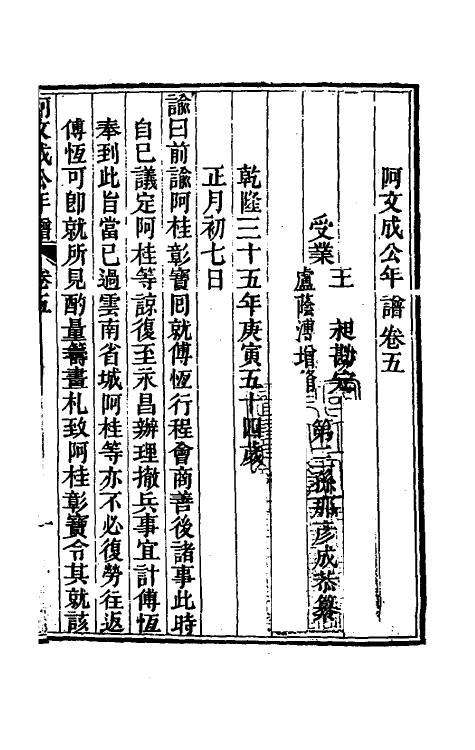 阿文成公年譜卷五
第三孫那彥成恭纂
受業
王昶勘定
盧蔭溥增修
乾隆三十五年庚寅五十四歲
正月初七日
諭曰前諭阿桂彰寶同就傅恆行程會商善後諸事此時
自己議定阿桂等諒復至永昌辦理撤兵事宜計傅恆
奉到此旨當已過雲南省城阿桂等亦不必復勞往返
傅恆可卽就所見酌量籌畫札致阿桂彰寶令其就該
阿文成公年譜 卷五 一